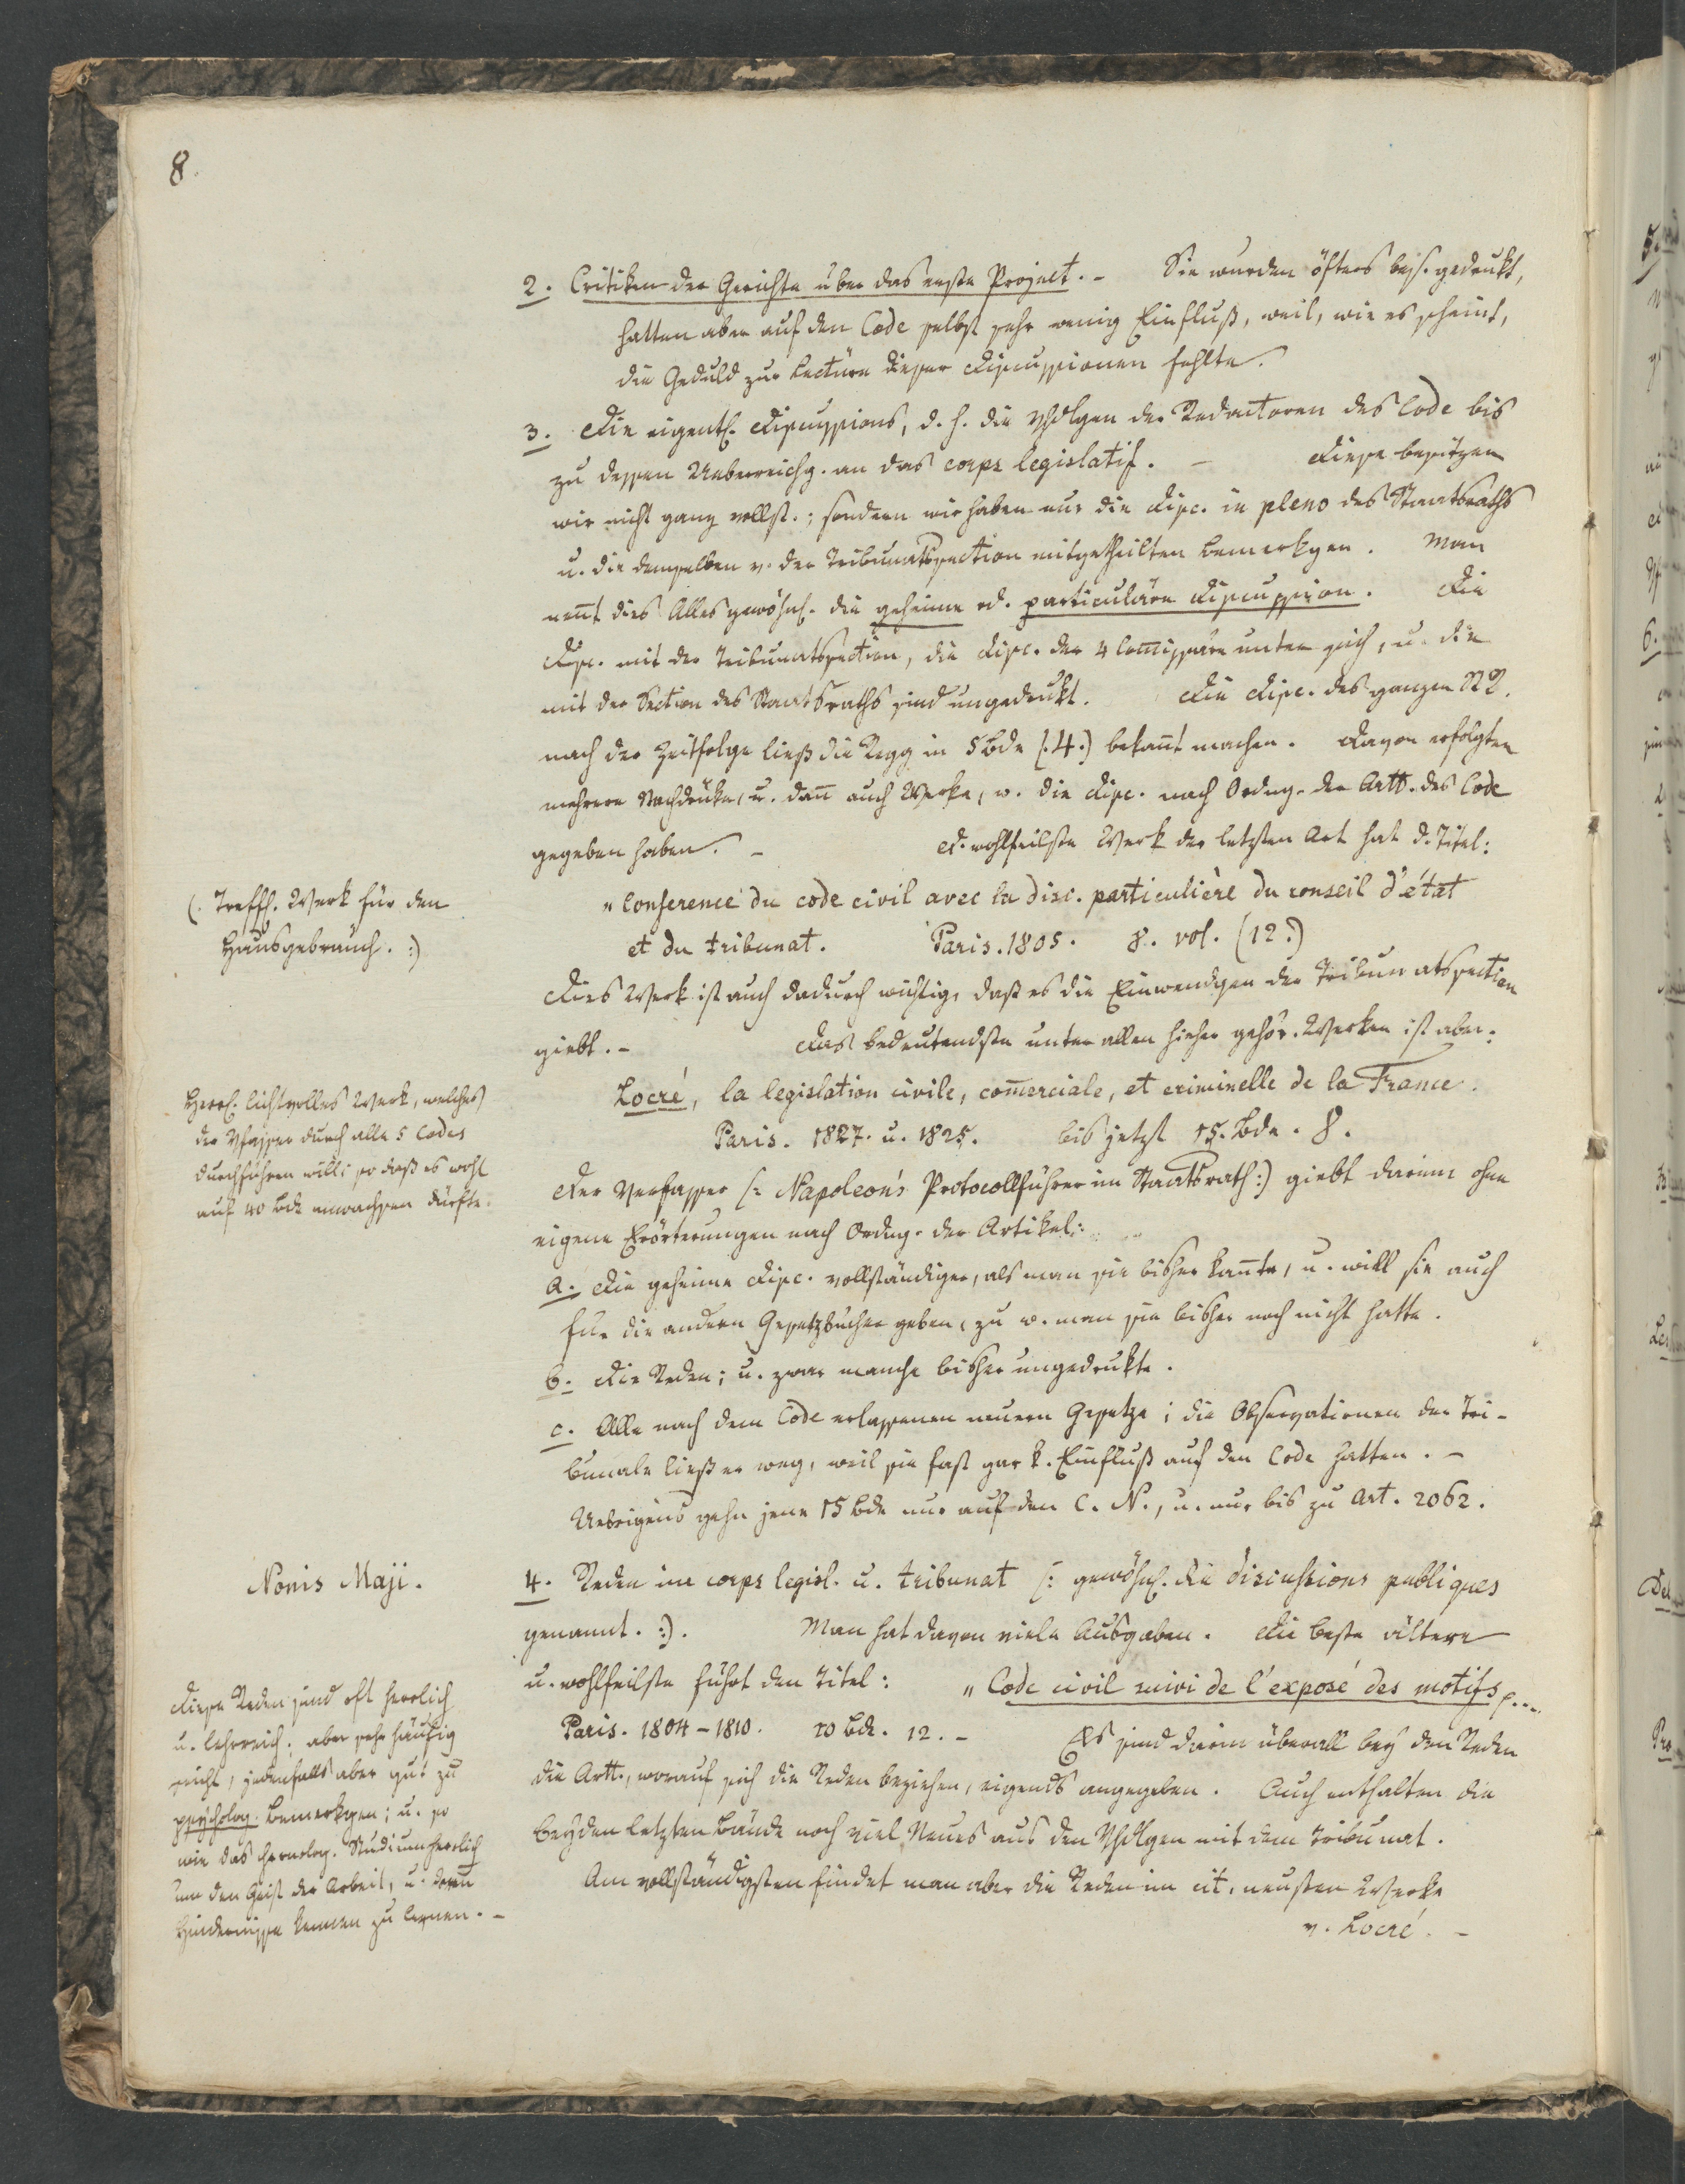 8.
2. Critiken der Gerichte über das erste Project. – Sie wurden öfters bes. gedrukt,
hatten aber auf den Code selbst sehr wenig Einfluß, weil, wie es scheint,
die Geduld zur Lectüre dieser Discussionen fehlte.
3. Die eigentl. Discussions, d. h. die Vhdlgen der Redactoren des Code bis
zu dessen Ueberreichg. an das corps legislatif. – Diese besitzen
wir nicht ganz vollst.; sondern wir haben nur die Disc. in pleno des Staatsraths
u. die demselben v. der Tribunatssection mitgetheilten Bemerkgen. Man
nennt dies Alles gewöhnl. die geheime od. particuläre Discussion. Die
Disc. mit der Tribunatssection, die Disc. der 4 Commissäre unter sich, u. die
mit der Section des Staatsraths sind ungedrukt. Die Disc. des ganzen
nach der Zeitfolge ließ die Regg in 5 Bde (4.) bekannt machen. Davon erfolgten
mehrere Nachdrüke, u. dann auch Werke, w. die Disc. nach Ordng. der Artt. des Code
gegeben haben. – D. wohlfeilste Werk der letzten Art hat d. Titel:
(: Treffl. Werk für den
Hausgebrauch. :)
„Conference du code civil avec la disc. particulière du conseil d'état
et du tribunat. Paris. 1805. 8. vol. (12.)
Dies Werk ist auch dadurch wichtig, daß es die Einwendgen der Tribunatssection
giebt. – Das bedeutendste unter allen hieher gehör. Werken ist aber:
Herrl. lichtvolles Werk, welches
der Vfasser durch alle 5 Codes
durchführen will; so daß es wohl
auf 40 Bde anwachsen dürfte.
Locré, la legislation civile, commerciale, et criminelle de la France.
Paris. 1827. u. 1825. bis jetzt 15. Bde. 8.
Der Verfasser (: Napoleon's Protocollführer im Staatsrath :) giebt darinn ohne
eigene Erörterungen nach Ordng. der Artikel:
a. Die geheime Disc. vollständiger, als man sie bisher kannte, u. will sie auch
für die andern Gesetzbücher geben, zu w. man sie bisher noch nicht hatte.
b. Die Reden; u. zwar manche bisher ungedrukte.
c. Alle nach dem Code erlassenen neuern Gesetze; die Observationen der Tri-
bunale ließ er weg, weil sie fast gar k. Einfluß auf den Code hatten. –
Uebrigens gehn jene 15 Bde nur auf den C. N., u. nur bis zu Art. 2062.
Nonis Maji.
4. Reden im corps legisl. u. tribunat (: gewöhnl. die discussions publiques
genannt. :). Man hat davon viele Ausgaben. Die beste ältere
u. wohlfeilste führt den Titel: „Code civil suivi de l'exposé des motifs p...
Paris. 1804–1810. 10 Bde. 12. – Es sind darin überall bey den Reden
die Artt., worauf sich die Reden beziehen, eigends angegeben. Auch enthalten die
beyden letzten Bände noch viel Neues aus den Vhdlgen mit dem Tribunat.
Am vollständigsten findet man aber die Reden im cit. neusten Werke
v. Locré. –
Diese Reden sind oft herrlich
u. lehrreich; aber sehr häufig
nicht, jedenfalls aber gut zu
psycholog. Bemerkgen; u. so
wie das chronolog. Studium herrlich
um den Geist der Arbeit, u. deren
Hindernisse kennen zu lernen. –